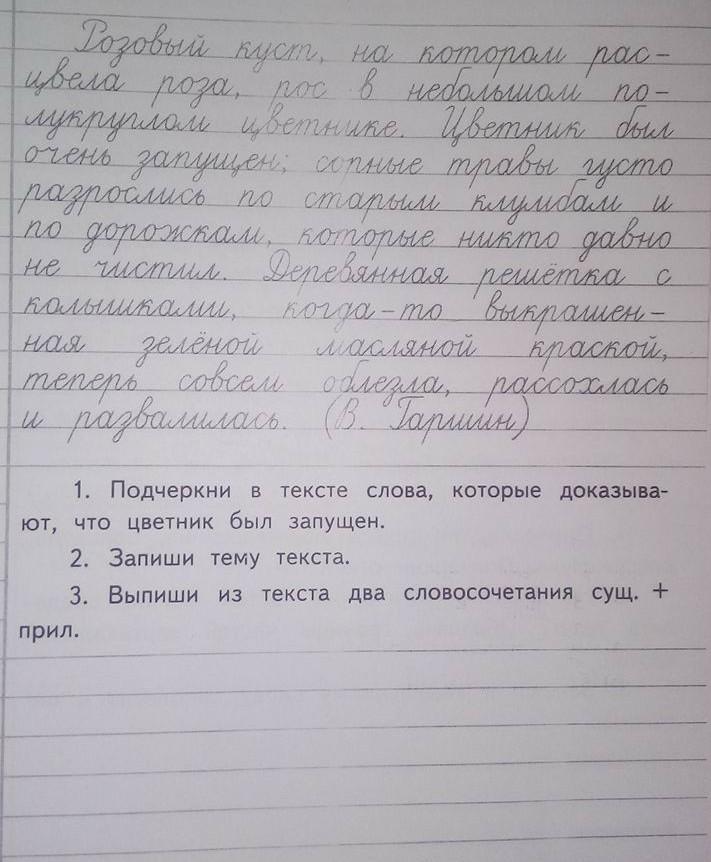 Розовый куст, на котором рас-
цвела роза, рос в небольшом по-
лукруглом цветнике. Цветник был
очень запущен; сорные травы густо
разрослись по старым клумбам и
по дорожкам, которые никто давно
не чистил. Деревянная решётка с
колышками, когда-то выкрашен-
ная зелёной масляной краской,
теперь совсем облезла, рассохлась
и развалилась. (В. Гаршин)
1. Подчеркни в тексте слова, которые доказыва-
ют, что цветник был запущен.
2. Запиши тему текста.
3. Выпиши из текста два словосочетания сущ. +
прил.